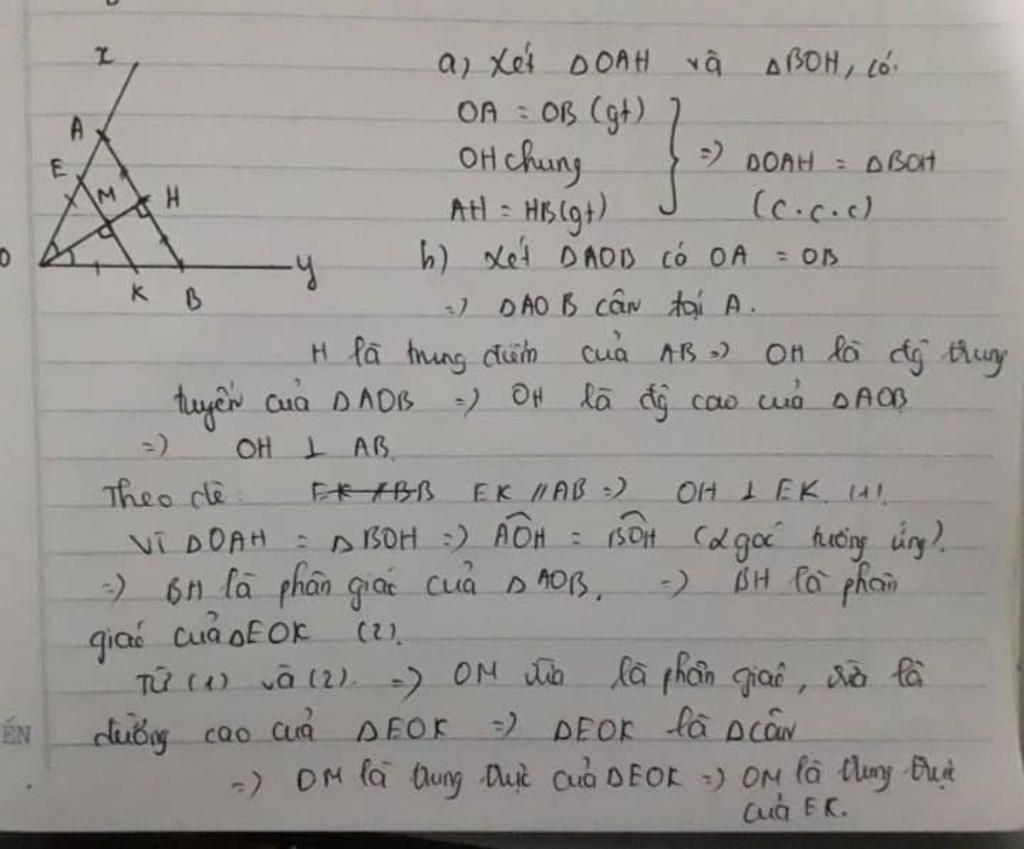 x
A
E
M
H
O
K
B
y
a) Xét ΔOAH và ΔBOH, có:
OA = OB (gt)
OH chung
AH = HB (gt)
=> ΔOAH = ΔBOH
(c.c.c)
b) Xét ΔAOB có OA = OB
=> ΔAOB cân tại A.
H là trung điểm của AB => OH là đg trung
tuyến của ΔAOB => OH là đg cao của ΔAOB
=> OH ⊥ AB.
Theo đề: EK // AB => OH ⊥ EK. (1).
Vì ΔOAH = ΔBOH => AÔH = BÔH (2 góc tương ứng).
=> BH là phân giác của ΔAOB. => BH là phân
giác của ΔEOK (2).
Từ (1) và (2). => OM vừa là phân giác, vừa là
đường cao của ΔEOK => ΔEOK là Δ cân
=> OM là trung trực của ΔEOK => OM là trung trực
của EK.
ẾN